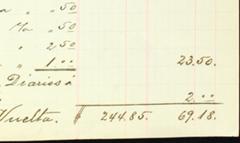 " .50
" .50
" 2.50
" 1.00 23.50.
Diarios á
2.00
Vuelta. 244.85. 69.18.